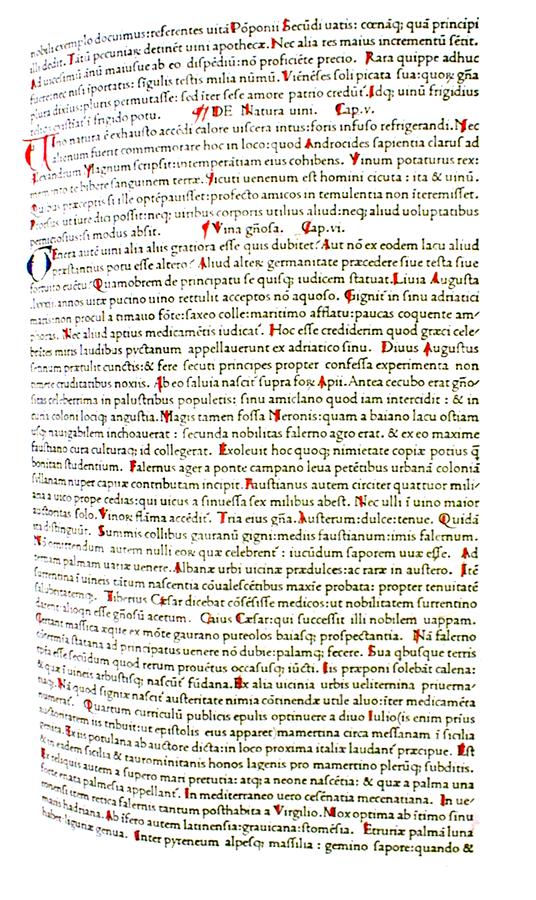 nobili exemplo docuimus:referentes uitā Pōponii Secūdi uatis: cœnāq; quā principi
illi dedit. Tātū pecuniæ detinēt uini apothecæ. Nec alia res maius incrementū sētit.
Ad uicesimū ānū maiusue ab eo dispēdiū:nō proficiēte precio. Rara quippe adhuc
fuere:nec nisi īportatis: sīgulis testis milia nūmū. Viēnēses soli picata sua:quoꝝ gn̄a
plura diximus:pluris permutasse:sed iter sese amore patrio credūt. Idq; uinū frigidius
frigido potu. ¶ DE Natura uini. Cap.v.
Vino natura ē exhausto accēdi calore uiscera intus:foris infuso refrigerandi. Nec
alienum fuerit commemorare hoc in loco:quod Androcides sapientia clarus ad
Alexandrum Magnum scripsit:intemperātiam eius cohibens. Vinum potaturus rex:
memento te bibere sanguinem terræ. Sicuti uenenum est homini cicuta : ita & uinū.
Quibus præceptis si ille optēpauisset:profecto amicos in temulentia non iteremisset.
Prorsus ut iure dici possit:neq; uiribus corporis utilius aliud:neq; aliud uoluptatibus
perniciosius:si modus absit. ¶ Vina gn̄osa. Cap.vi.
Genera autē uini alia aliis gratiora esse quis dubitet? Aut nō ex eodem lacu aliud
præstantius potu esse altero? Aliud alteꝝ germanitate præcedere siue testa siue
fortuito euētu? Quamobrem de principatu se quisq; iudicem statuat. Liuia Augusta
.lxxxii. annos uitæ pucino uino rettulit acceptos nō aquoso. Gignit in sinu adriatici
maris:non procul a timauo fōte:saxeo colle:maritimo afflatu:paucas coquente am⸗
phoras. Nec aliud aptius medicamētis iudicat. Hoc esse crediderim quod græci cele⸗
brites miris laudibus pyctanum appellauerunt ex adriatico sinu. Diuus Augustus
setinum prætulit cunctis:& fere secuti principes propter confessa experimenta non
temere cruditatibus noxiis. Ab eo saluia nascit supra foꝝ Apii. Antea cecubo erat gn̄o⸗
sitas celeberrima in palustribus populetis: sinu amiclano quod iam intercidit : & in
curia coloni locīq; angustia. Magis tamen fossa Neronis:quam a baiano lacu ostiam
usq; nauigabilem inchoauerat : secunda nobilitas falerno agro erat. & ex eo maxime
faustiano cura culturaq; id collegerat. Exoleuit hoc quoq; nimietate copiæ potius q̄
bonitati studentium. Falernus ager a ponte campano leua petētibus urbanā coloniā
syllanam nuper capuæ contributam incipit. Faustianus autem circiter quattuor mili⸗
aria a uico prope cedias:qui uicus a sinuessa sex milibus abest. Nec ulli ī uino maior
auctoritas solo. Vinoꝝ flāma accēdit. Tria eius gn̄a. Austerum:dulce:tenue. Quidā
ita distinguūt. Summis collibus gauranū gigni:mediis faustianum:imis falernum.
Nō omittendum autem nulli eoꝝ quæ celebrent : iucūdum saporem uuæ esse. Ad
tertiam palmam uariæ uenere. Albanæ urbi uicinæ prædulces:ac raræ in austero. Itē
surrentina ī uineis tātum nascentia cōualescētibus maxie probata: propter tenuitatē
salubritatemq;. Tiberius Cæsar dicebat cōsēsisse medicos:ut nobilitatem surrentino
darent alioqn esse gn̄osū acetum. Caius Cæsar:qui successit illi nobilem uappam.
Certant massica æque ex mōte gaurano puteolos baiasq; prospectantia. Nā falerno
cōtermia statana ad principatus uenere nō dubie:palamq; fecere. Sua qbusque terris
tpra esse secūdum quod rerum prouētus occasusq; iūcti. Iis præponi solebāt calena:
& quæ ī uineis arbustisq; nascūt fūdana. Ex alia uicinia urbis ueliternina priuerna⸗
naq;. Nā quod signiæ nascit austeritate nimia cōtinendæ utile aluo:iter medicamēta
numerat. Quartum curriculū publicis epulis optinuere a diuo Iulio(is enim prius
auctoritatem iis tribuit:ut epistolis eius apparet)mamertina circa messanam ī sicilia
genita. Ex iis potulana ab auctore dicta:in loco proxima italiæ laudant præcipue. Est
& in eadem sicilia & taurominitanis honos lagenis pro mamertino plerūq; subditis.
Ex reliquis autem a supero mari pretutia: atq; a neone nascētia: & quæ a palma una
forte enata palmesia appellant. In mediterraneo uero cesēnatia mecenatiana. In ue⸗
ronensi item retica falernis tantum posthabita a Virgilio. Mox optima ab itimo sinu
maris hadriana. Ab ifero autem latinensia:grauicana:stomēsia. Etruriæ palmā luna
habet:liguriæ genua. Inter pyreneum alpesq; massilia : gemino sapore:quando &